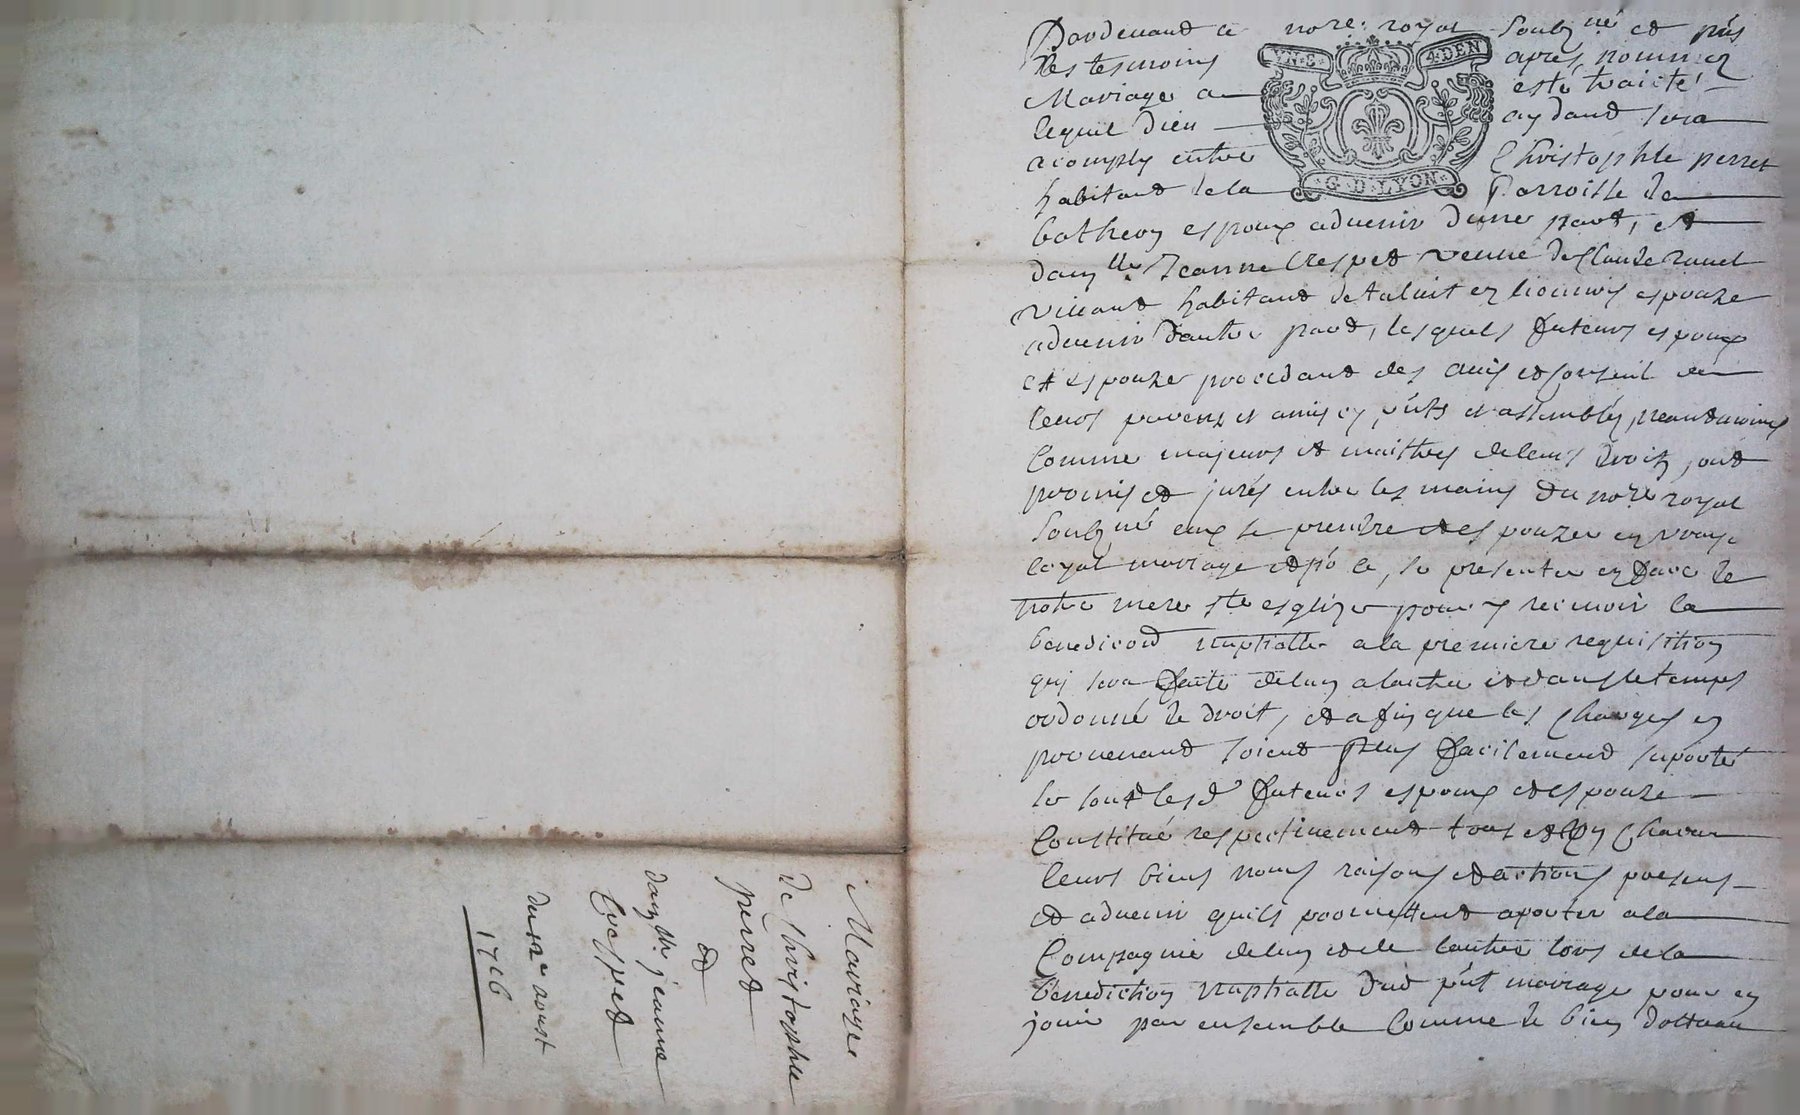 Pardevant le nore. royal soubzné et pñs
les tesmoins apres nommez
Mariage a esté traicté
lequel Dieu aydant sera
acomply entre Christophle perret
habitant de la Parroisse de
botheon espoux aduenir d'une part, et
damlle Jeanne Crespet veuue de Claude
viuant habitant de taluit en lionnois espouze
aduenir d'autre part, lesquels futeurs espoux
et espouze procedant des auis et conseil de
leurs parens et amis cy pñts et assemblés, neantmoins
comme majeurs et maistres de leurs droits, ont
promis et jurés entre les mains du nore royal
soubzné eux se prendre et espouzer en vraye
loyal mariage et po ce, se presenter en face de
notre mere ste esglize pour y receuoir la
benediction nuptialle a la premiere requisition
quy sera faite de lun a lautre et dans le temps
ordonné de droit, et afin que les charges en
prouenant soient plus facilement suporté
se sont lesd futeurs espoux et espouze
Constitué respectiuement tous et un chacun
leurs biens noms raisons et actions presens
et aduenir quils promettent aporter a la
Compagnie de lun et de lautre lors de la
benediction nuptialle dud pñt mariage pour en
jouir par ensemble comme de bien dottaux
VN·S· 4·DEN
G·D·LYON·
Mariage
de Christophle
perret
et
damlle jeanne
Crespet
du 12e aoust
1716